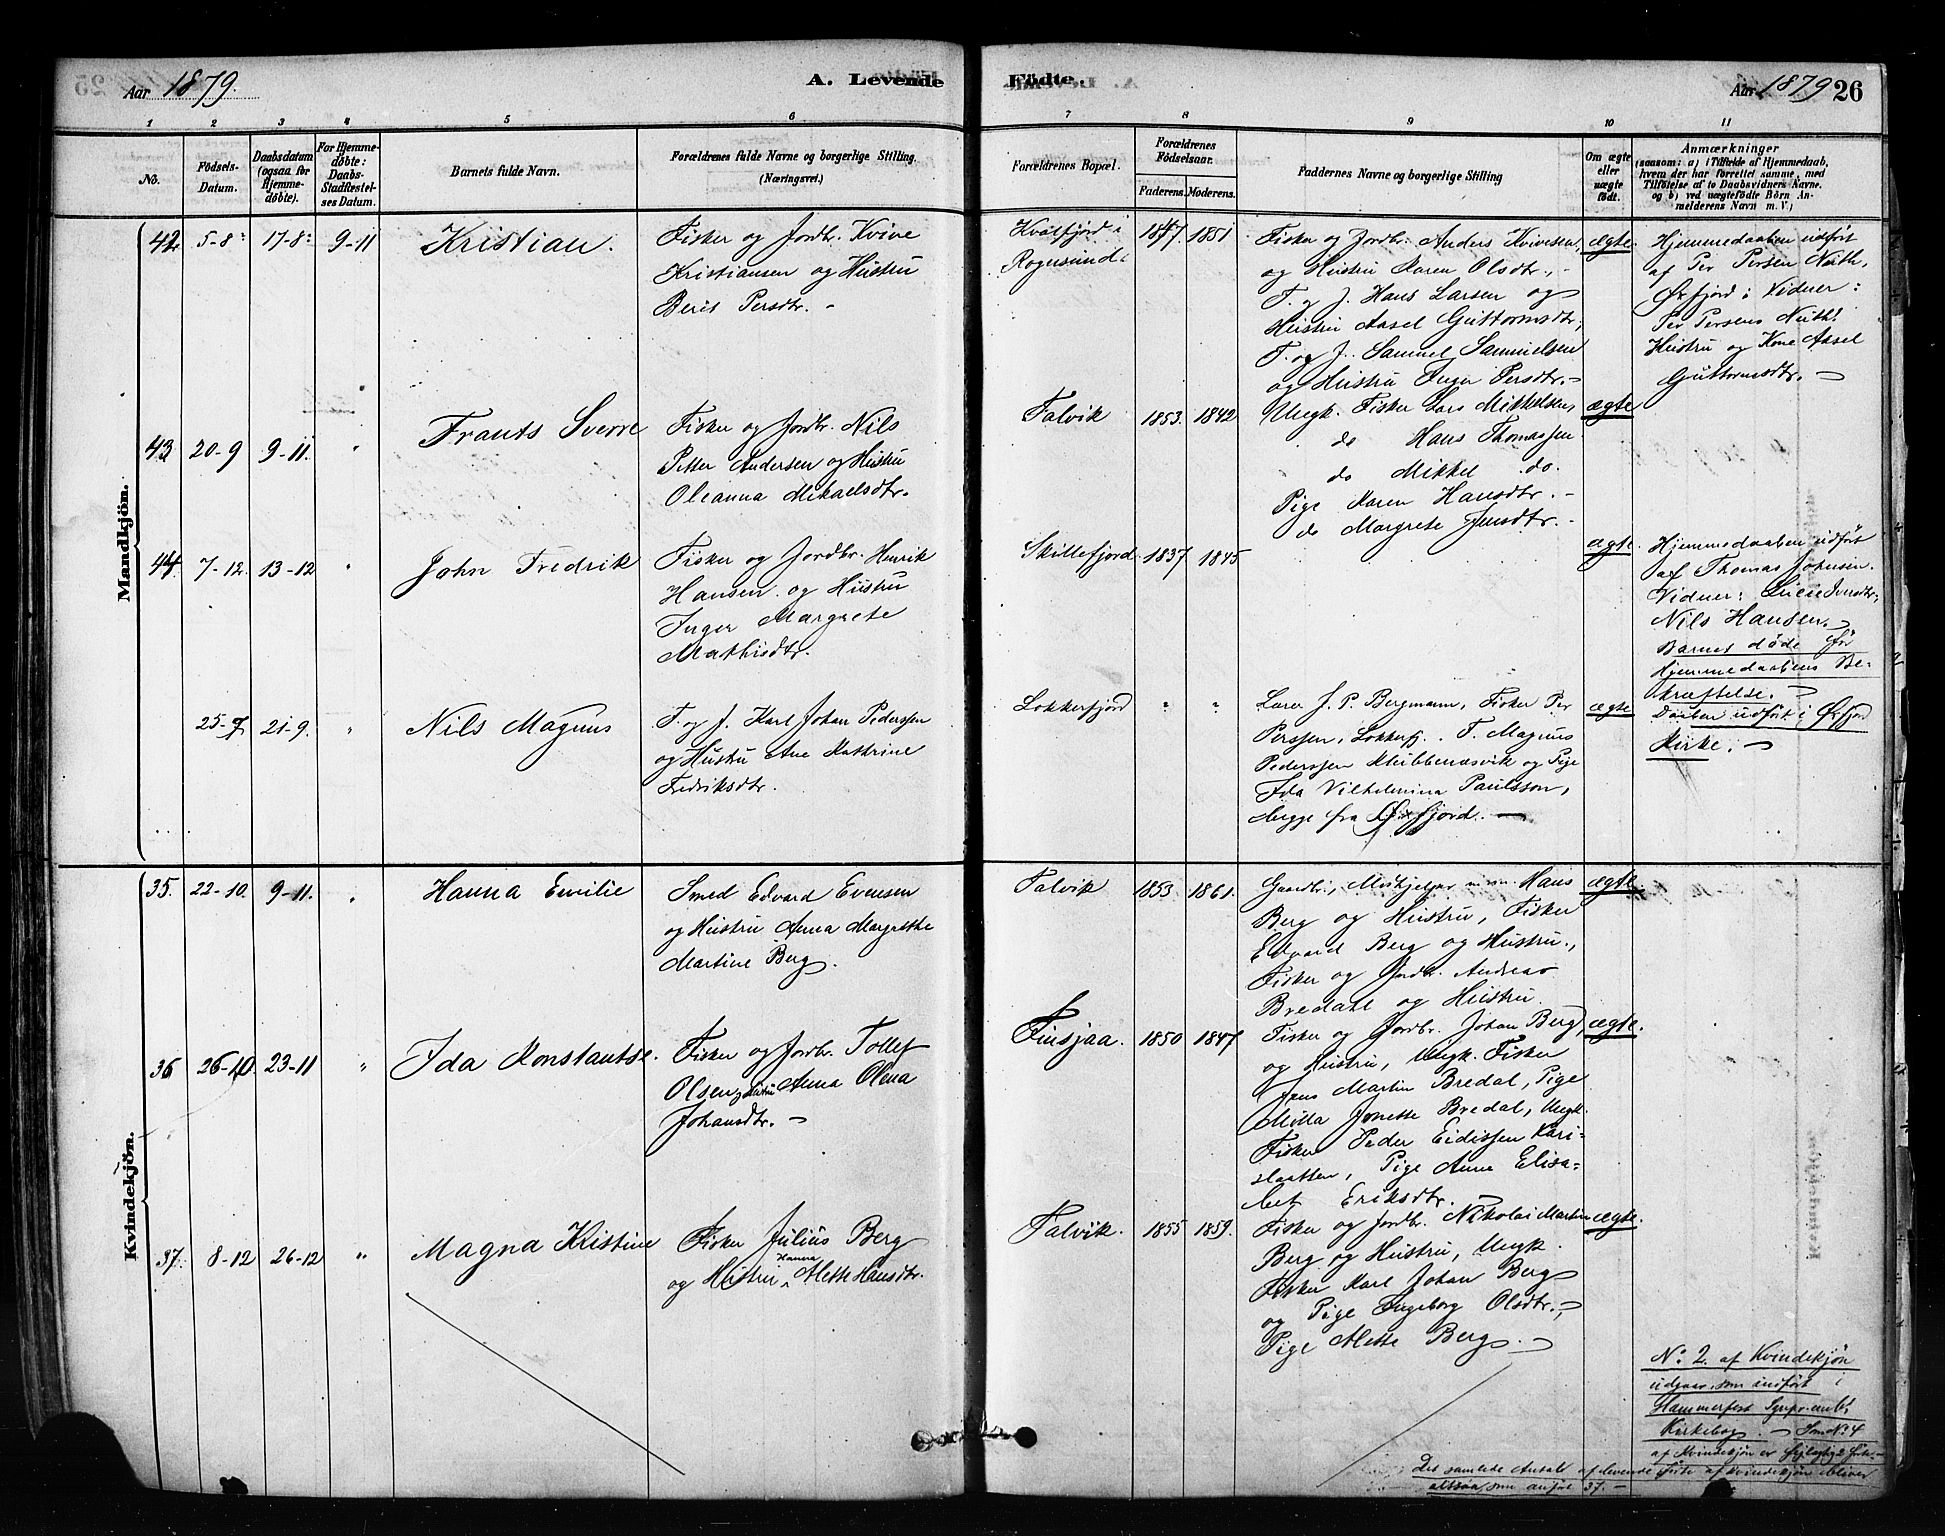 Aar 1879.
A. Levende
1 2 3 4 5 6
No.
Födsels-
Datum.
Daabsdatum
(ogsaa for
Hjemme-
döbte).
For Hjemme-
döbte:
Daabs-
Stadfæstel-
ses Datum.
Barnets fulde Navn.
Forældrenes fulde Navne og borgerlige Stilling.
(Næringsvei.)
Mandkjön.
42. 5-8 17-8 9-11 Kristian.
Fisker og Jordbr. Kvive
Kristiansen og Hustru
Berit Persdtr. -
43 20-9 9-11. " Frants Sverre
Fisker og Jordbr. Nils
Petter Andersen og Hustru
Oleanna Mikaelsdtr.
44. 7-12. 13-12 " John Fredrik
Fisker og Jordbr. Henrik
Hansen og Hustru
Inger Margrete
Mathisdtr.
25-7 21-9. " Nils Magnus
F. og J. Karl Johan Pederssen
og Hustru Ane Kathrine
Fredriksdtr.
Kvindekjön.
35. 22-10. 9-11. " Hanna Emilie
Smed Edvard Evensen
og Hustru Anna Margrethe
Martine Berg.
36 26-10. 23-11 " Ida Konstantse.
Fisker og Jordbr. Tollef
Olsen og Hustru Anna Olena
Johansdtr. -
37. 8-12 26-12 " Magna Kristine
Fisker Julius Berg
og Hustru Hanna Mette Hansdtr.
Födte.
Aar 1879 26
7 8 9 10 11
Forældrenes Bopæl.
Forældrenes
Födselsaar.
Faderens. Moderens.
Faddernes Navne og borgerlige Stilling
Om ægte
eller
uægte
födt.
Anmærkninger
(saasom: a) i Tilfælde af Hjemmedaab,
hvem der har forrettet samme, med
Tilföielse af to Daabsvidners Navne,
og b) ved uægtefödte Börn An-
melderens Navn m. V.)
Kvalfjord i
Rognsund.
1847 1851
Fisker og Jordbr. Anders Kvivesen
og Hustru Karen Olsdtr., -
F. og J. Hans Larsen og
Hustru Aasel Guttormsdtr;
F. og J. Samuel Samuelsen
og Hustru Inger Persdtr. -
ægte.
Hjemmedaaben udført
af Per Persen Nuth,
Øxfjord; Vidner:
Per Persens Nuth
Hustru og Kone Aasel
Guttormsdtr. -
Talvik 1853. 1842
Ungk. Fisker Lars Mikkelsen,
do Hans Thomassen
do Mikkel do.
Pige Karen Hansdtr. -
do Margrete Jensdtr. -
ægte
Skillefjord 1837 1845
ægte.
Hjemmedaaben udført
af Thomas Johnsen.
Vidner: Lucie Iversdtr,
Nils Hansen. -
Barnet døde før
Hjemmedaabens Be-
kræftelse. -
Lokkerfjord " "
Lærer J. P. Bergmann, Fisker Per
Perssen, Lokkerfj. F. Magnus
Pederssen Klubbenæsvik og Pige
Ida Vilhelmina Paulsson,
begge fra Øxfjord. -
ægte
Daaben udført i Øxfjord
Kirke. -
Talvik 1853. 1861.
Hans
Berg og Hustru, Fisker
Edvard Berg og Hustru,
Fisker og Jordbr. Andreas
Bredahl og Hustru.
ægte.
Finsjaa. 1850 1847
Fisker og Jordbr. Johan Berg
og Hustru, Ungk. Fisker
Jens Martin Bredal, Pige
Milla Jonette Bredal, Ungk.
Fisker Peder Eidissen Kari-
slaatten, Pige Anne Elisa-
bet Eriksdtr.
ægte.
Talvik. 1855 1859.
Fisker og Jordbr. Nikolai Martin
Berg og Hustru, Ungk.
Fisker Karl Johan Berg
og Pige Ingeborg Olsdtr., -
Pige Mette Berg. -
ægte.
No 2. af Kvindekjön
udgaar, som indført i
Hammerfest
Kirkebog. - Som No 4
af Kvindekjön er
Det samlede Antal af levende Føte af Kvindekjön bliver
altsaa, som anført 37. -